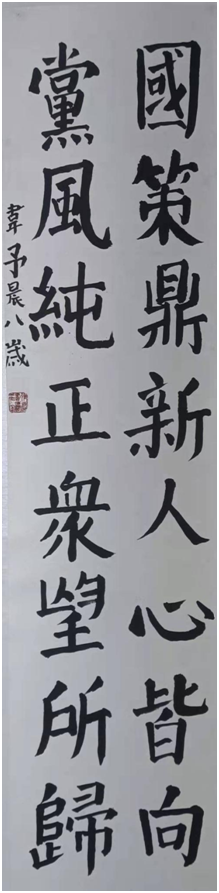 國策鼎新人心皆向
黨風純正衆望所歸
韋予晨八歲